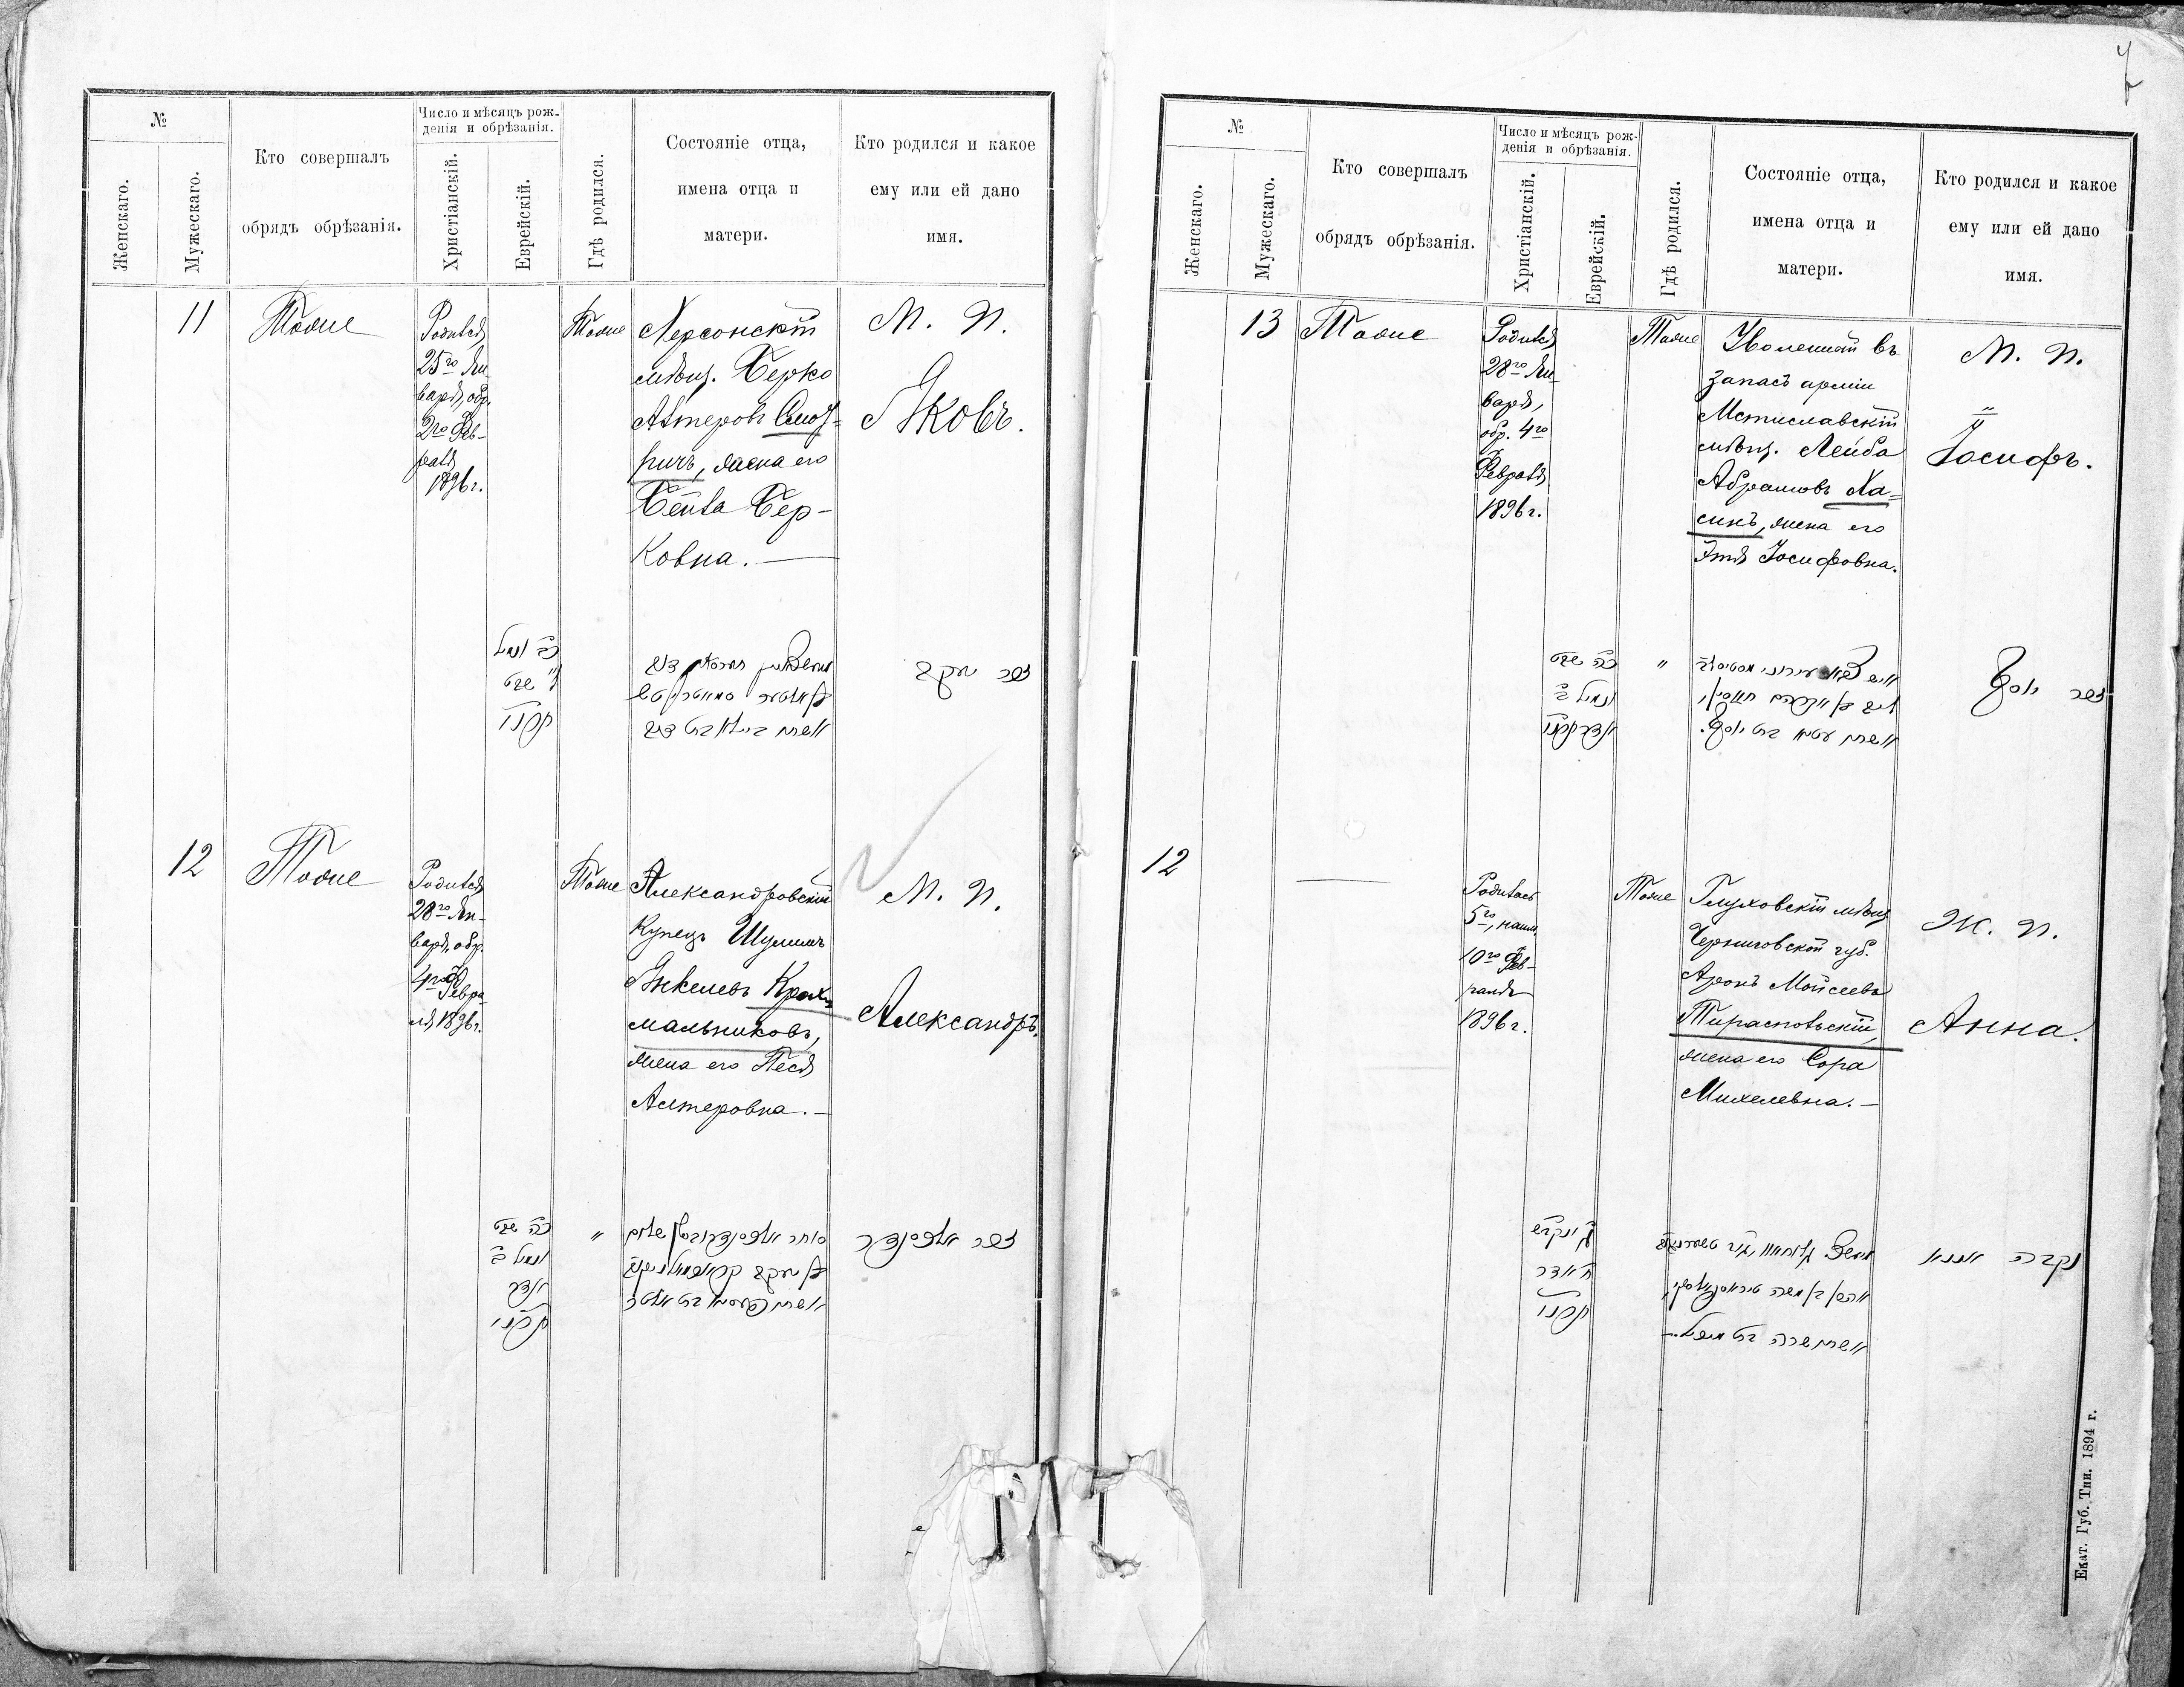 №
Женскаго.
Мужескаго.
Кто совершалъ
обрядъ обрѣзанія.
Число и мѣсяцъ рож-
денія и обрѣзанія.
Христіанскій.
Еврейскій.
Гдѣ родился.
Состояніе отца,
имена отца и
матери.
Кто родился и какое
ему или ей дано
имя.
11
Тоже
Родился
25го Ян-
варя, обр.
2го Фев-
раля
1896 г.
Тоже
Херсонскій
мѣщ. Берко
Алтеровъ Смот-
ричъ, жена его
Бейла Бер-
ковна. —
М. П.
Яковъ.
זכר יעקב
12
Тоже
Родился
28го Ян-
варя, обр.
4го Февра-
ля 1896 г.
Тоже
Александровскій
Купецъ Шулимъ
Янкелевъ Крах-
мальниковъ,
жена его Песя
Алтеровна. —
М. П.
Александръ.
כ״ה שבט
ונימול ב׳
אדר
תרנ״ו
"
זכר אלכסנדר
7
№
Женскаго.
Мужескаго.
Кто совершалъ
обрядъ обрѣзанія.
Число и мѣсяцъ рож-
денія и обрѣзанія.
Христіанскій.
Еврейскій.
Гдѣ родился.
Состояніе отца,
имена отца и
матери.
Кто родился и какое
ему или ей дано
имя.
13
Тоже
Родился
28го Ян-
варя,
обр. 4го
Февраля
1896 г.
Тоже
Уволенный въ
запасъ арміи
Мстиславскій
мѣщ. Лейба
Абрамовъ Ха-
синъ, жена его
Этя Іосифовна.
М. П.
Іосифъ.
כ״ה שבט
ונימול ב׳
אדר תרנ״ו
"
זכר יוסף
12
—
Родилась
5го, наим.
10го Фев-
раля
1896 г.
Тоже
Глуховскій мѣщ.
Черниговской губ.
Аронъ Мойсеевъ
Тираспольскій,
жена его Сора
Михелевна. —
Ж. П.
Анна.
נקבה אננא
Екат. Губ. Тип. 1894 г.